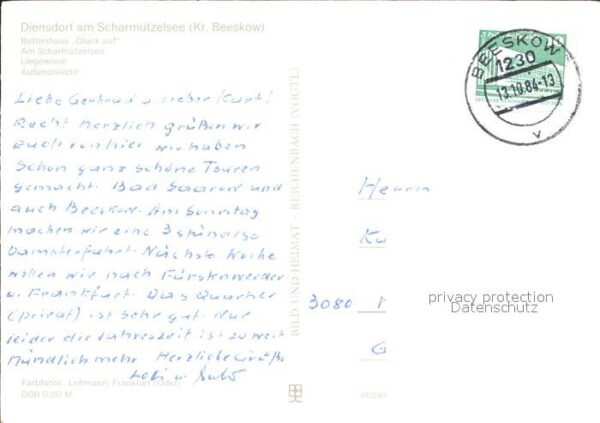 Diensdorf am Scharmützelsee (Kr. Beeskow)
Bettenhaus „Glück auf"
Am Scharmützelsee
Liegewiese
Außenansicht
Liebe Gertraud u. lieber Kurt!
Recht herzlich grüßen wir
Euch von hier wir haben
schon ganz schöne Touren
gemacht. Bad Saarow und
auch Beeskow. Am Sonntag
machen wir eine 3 stündige
Dampferfahrt. Nächste Woche
wollen wir nach Fürstenwerder
u. Frankfurt. Das Quartier
(privat) ist sehr gut. Nur
leider die Jahreszeit ist zu weit
Mündlich mehr. Herzliche Grüße
u.
Farbfotos: Lehmann, Frankfurt (Oder)
DDR 0,20 M
BILD UND HEIMAT - REICHENBACH (VOGTL)
BEESKOW
1230
13.10.84-13
v
Herrn
Ku
3080
G
privacy protection
Datenschutz